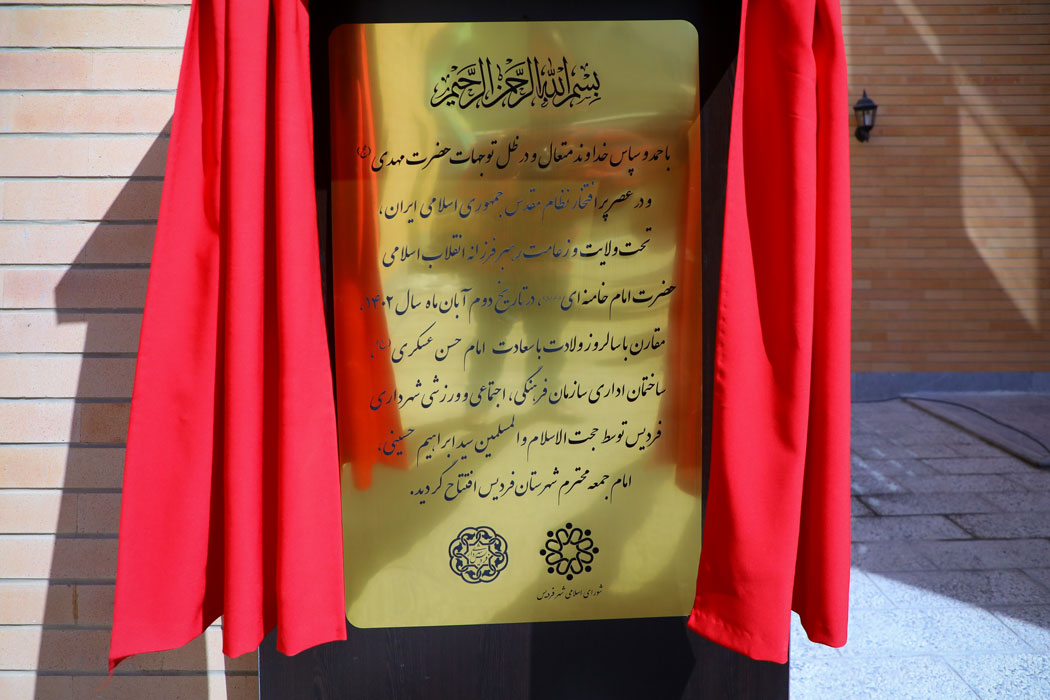 بسم الله الرحمن الرحیم
با حمد و سپاس خداوند متعال و در ظل توجهات حضرت مهدی (عج)
و در عصر پر افتخار نظام مقدس جمهوری اسلامی ایران،
تحت ولایت و زعامت رهبر فرزانه انقلاب اسلامی
حضرت امام خامنه ای، در تاریخ دوم آبان ماه سال ۱۴۰۲،
مقارن با سالروز ولادت باسعادت امام حسن عسکری
ساختمان اداری سازمان فرهنگی، اجتماعی و ورزشی شهرداری
فردیس توسط حجت الاسلام والمسلمین سید ابراهیم حسینی،
امام جمعه محترم شهرستان فردیس افتتاح گردید.
شورای اسلامی شهر فردیس